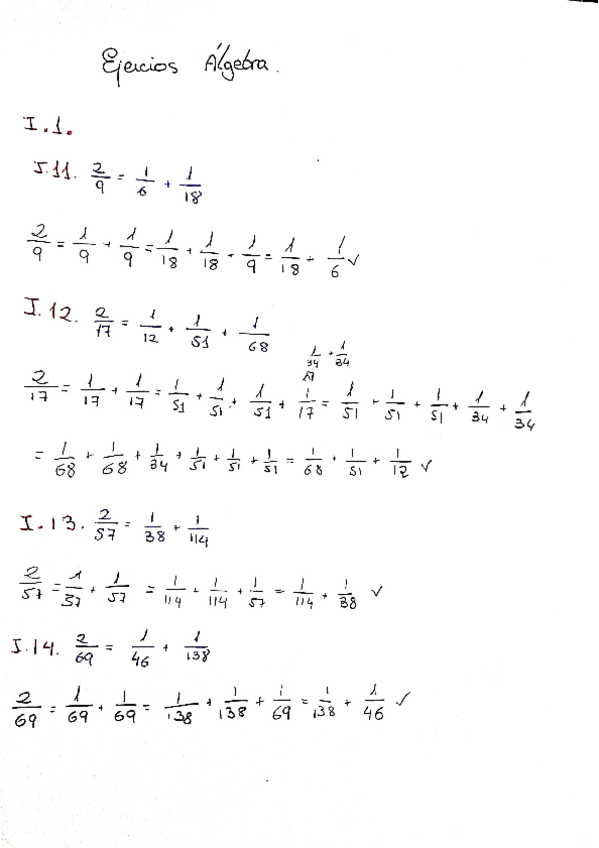 Ejercios Álgebra.
I.1.
I.11. 2/9 = 1/6 + 1/18
2/9 = 1/9 + 1/9 = 1/18 + 1/18 + 1/9 = 1/18 + 1/6 ✓
I.12. 2/17 = 1/12 + 1/51 + 1/68
1/34 + 1/34
2/17 = 1/17 + 1/17 = 1/51 + 1/51 + 1/51 + 1/17 = 1/51 + 1/51 + 1/51 + 1/34 + 1/34
= 1/68 + 1/68 + 1/34 + 1/51 + 1/51 + 1/51 = 1/68 + 1/51 + 1/12 ✓
I.13. 2/57 = 1/38 + 1/114
2/57 = 1/37 + 1/57 = 1/114 + 1/114 + 1/57 = 1/114 + 1/38 ✓
I.14. 2/69 = 1/46 + 1/138
2/69 = 1/69 + 1/69 = 1/138 + 1/138 + 1/69 = 1/138 + 1/46 ✓